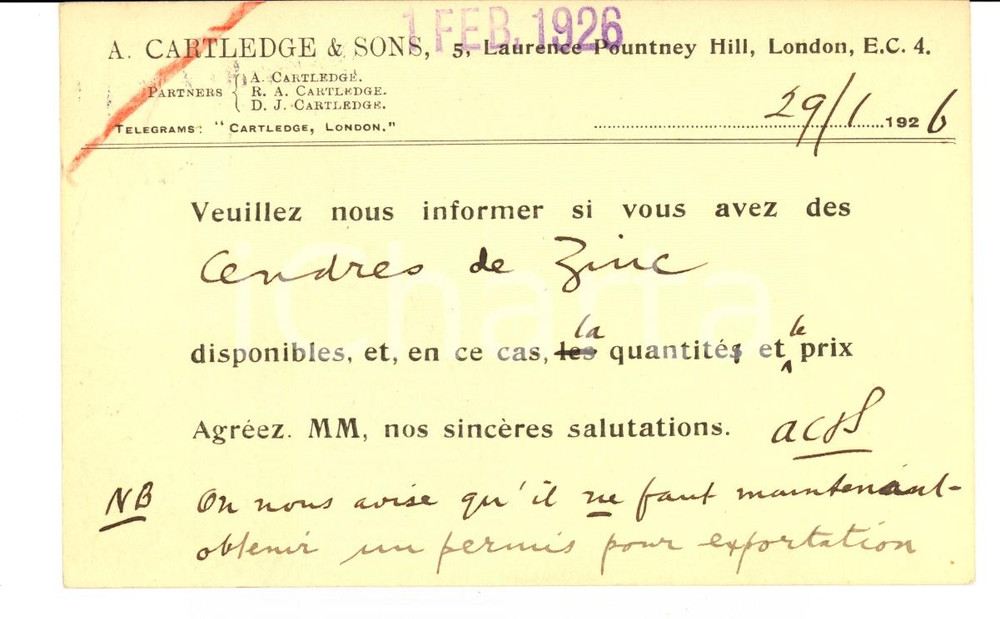 1 FEB. 1926
A. CARTLEDGE & SONS, 5, Laurence Pountney Hill, London, E.C. 4.
PARTNERS { A. CARTLEDGE.
R. A. CARTLEDGE.
D. J. CARTLEDGE.
TELEGRAMS: "CARTLEDGE, LONDON."
29/1 1926
Veuillez nous informer si vous avez des
Cendres de Zinc
la le
disponibles, et, en ce cas, les quantités et prix
Agréez. MM, nos sincères salutations. ACSS
NB On nous avise qu'il ne faut maintenant
obtenir un permis pour exportation
iCharta